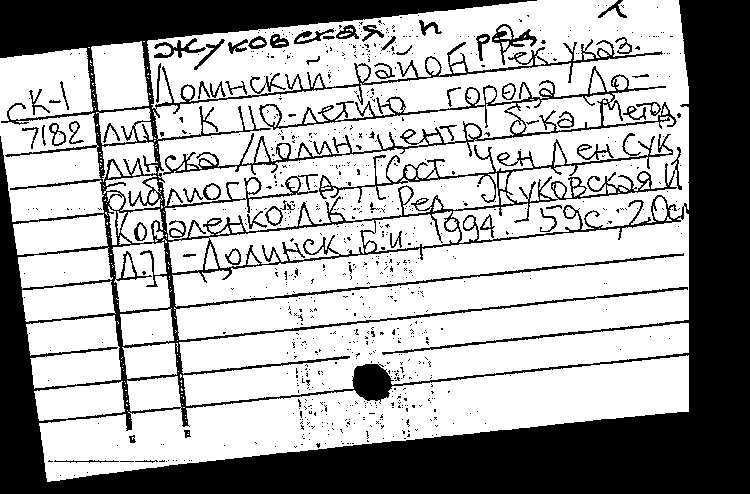 Жуковская, ред.
Долинский район: Рек. указ.
СК-1
7182
лит.: К 110-летию города До-
линска /Долин. центр. б-ка, Метод.-
библиогр. отд.; [Сост. Чен Ден Сук,
Коваленко Л.К.; Ред. Жуковская И
Л.] - Долинск: Б.и., 1994. - 59с.; 20см